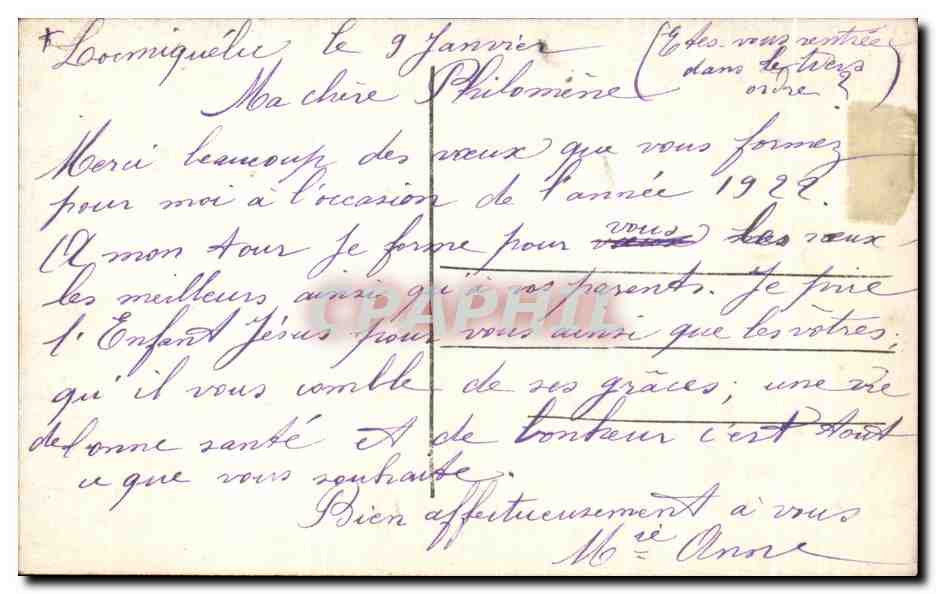 Locmiquélic le 9 Janvier
(Etes-vous rentrée
dans le tiers
ordre ?)
Ma chère Philomène
Merci beaucoup des vœux que vous formez
pour moi à l'occasion de l'année 1922.
A mon tour je forme pour vous les vœux
les meilleurs ainsi qu'à vos parents. Je prie
l'Enfant Jésus pour vous ainsi que les vôtres,
qu'il vous comble de ses grâces; une vie
de bonne santé et de bonheur c'est tout
ce que vous souhaite.
Bien affectueusement à vous
Mie Anne
CPAPHIL